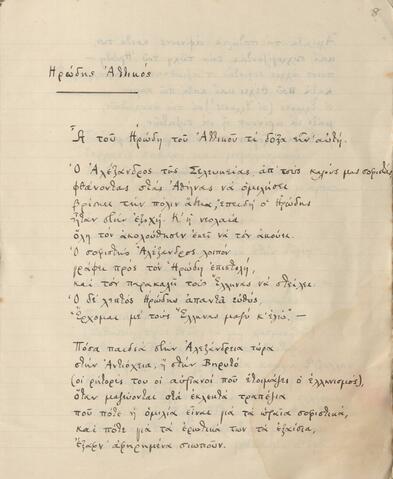 8
Ηρώδης Αττικός
Ἆ τοῦ Ἡρώδη τοῦ Ἀττικοῦ τί δόξα εἶν' αὐτή.
Ὁ Ἀλέξανδρος τῆς Σελευκείας, ἀπ' τοὺς καλούς μας σοφιστάς,
φθάνοντας στὰς Ἀθήνας νὰ ὁμιλήσει
βρίσκει τὴν πόλιν ἄδεια, ἐπειδὴ ὁ Ἡρώδης
ἦταν στὴν ἐξοχή. Κ' ἡ νεολαία
ὅλη τὸν ἀκολούθησεν ἐκεῖ νὰ τὸν ἀκούει.
Ὁ σοφιστὴς Ἀλέξανδρος λοιπὸν
γράφει πρὸς τὸν Ἡρώδη ἐπιστολή,
καὶ τὸν παρακαλεῖ τοὺς Ἕλληνας νὰ στείλει.
Ὁ δὲ λεπτὸς Ἡρώδης ἀπαντᾶ εὐθύς,
«Ἔρχομαι μὲ τοὺς Ἕλληνας μαζὺ κ' ἐγώ.» —
Πόσα παιδιὰ στὴν Ἀλεξάνδρεια τώρα
στὴν Ἀντιόχεια, ἢ στὴν Βηρυτὸ
(οἱ ρήτορές του οἱ αὐριανοὶ ποὺ ἑτοιμάζει ὁ ἑλληνισμός),
ὅταν μαζεύονται στὰ ἐκλεκτὰ τραπέζια
ποὺ πότε ἡ ὁμιλία εἶναι γιὰ τὰ ὡραῖα σοφιστικά,
καὶ πότε γιὰ τὰ ἐρωτικά των τὰ ἐξαίσια,
ἔξαφν' ἀφηρημένα σιωποῦν.